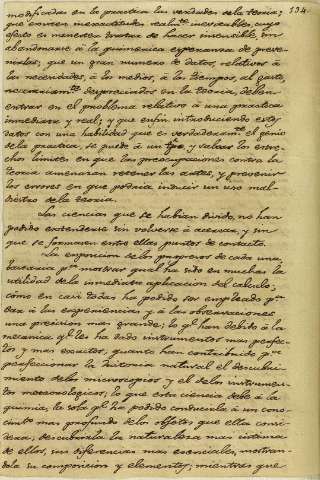 134.
modificadas en la practica las verdades de la teoria;
que existen inexactitudes realm.te inevitables, cuyo
efecto es menester tratar de hacer insensible, sin
abandonarse á la quimerica esperanza de preve-
nirlas; que un gran numero de datos, relativos á
las necesidades, á los medios, á los tiempos, al gasto,
necesariam.te despreciados en la teoria, deben
entrar en el problema relativo á una practica
inmediata y real; y que en fin introduciendo estos
datos con una habilidad que es verdaderam.te el genio
de la practica, se puede á un tpo. y salvar los estre-
chos limites en que las preocupaciones contra la
teoria amenazan retener las artes, y prevenir
los errores en que podria inducir un uso mal-
diestro de la teoria.
Las ciencias que se habian divido, no han
podido extenderse sin volverse á acercar, y sin
que se formasen entre ellas puntos de contacto.
La exposicion de los progresos de cada una,
bastaria p.a mostrar qual ha sido en muchas la
utilidad de la inmediata aplicacion del calculo;
cómo en casi todas ha podido ser empleado p.a
dar á las experiencias y á las observaciones
una precision mas grande; lo q.e han debido á la
mecanica q.e les ha dado instrumentos mas perfec-
tos y mas exactos; quanto han contribuido p.a
perfeccionar la historia natural el descubri-
miento de los microscopios y el de los instrumen-
tos meteorologicos; lo que esta ciencia debe á la
quimia, la sola q.e ha podido conducirla á un cono-
cim.to mas profundo de los objetos que ella consi-
dera, descubrirla la naturaleza mas intima
de ellos, sus diferencias mas esenciales, mostran-
dola su composicion y elementos; mientras que